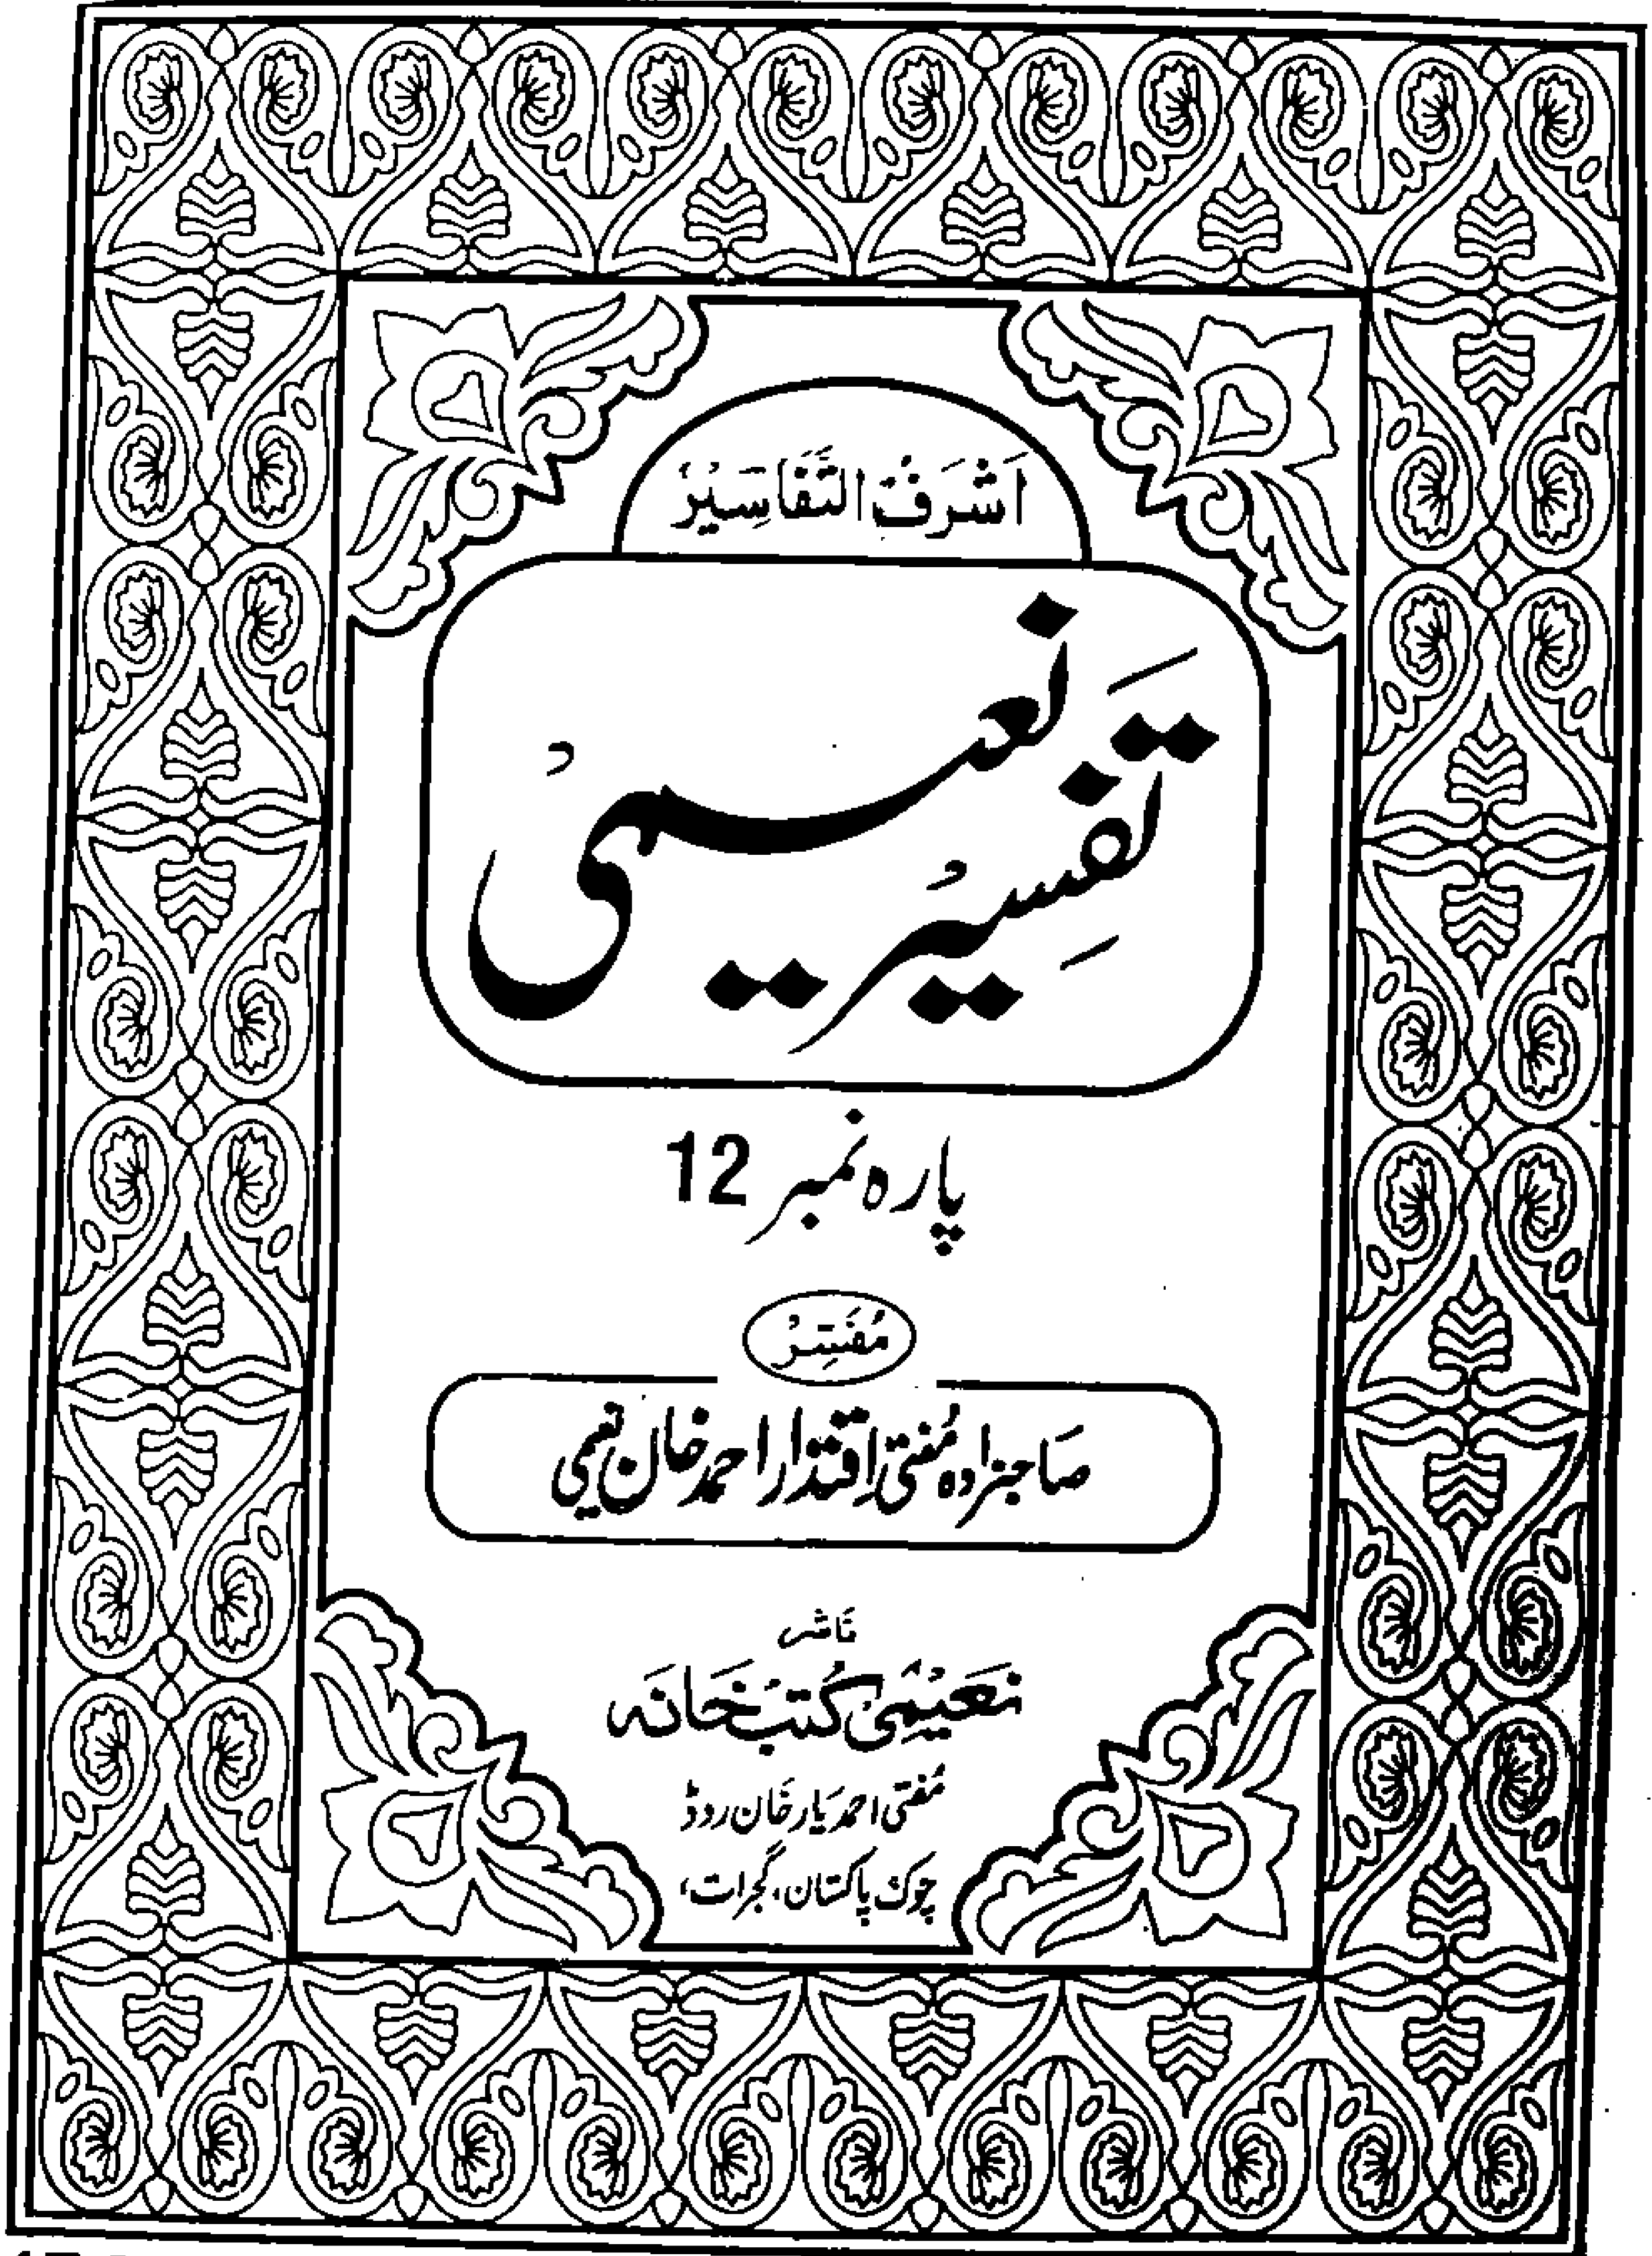 اَشْرَفُ التَّفَاسِيْرُ
تَفسِیر نعیمی
پارہ نمبر 12
مُفَسِّرْ
صاحبزادہ مُفتی اِقتدار احمد خان نعیمی
ناشر
نَعِیْمِیْ کُتبْ خَانَہ
مُفتی احمد یَار خَان روڈ
چوک پاکستان، گجرات،